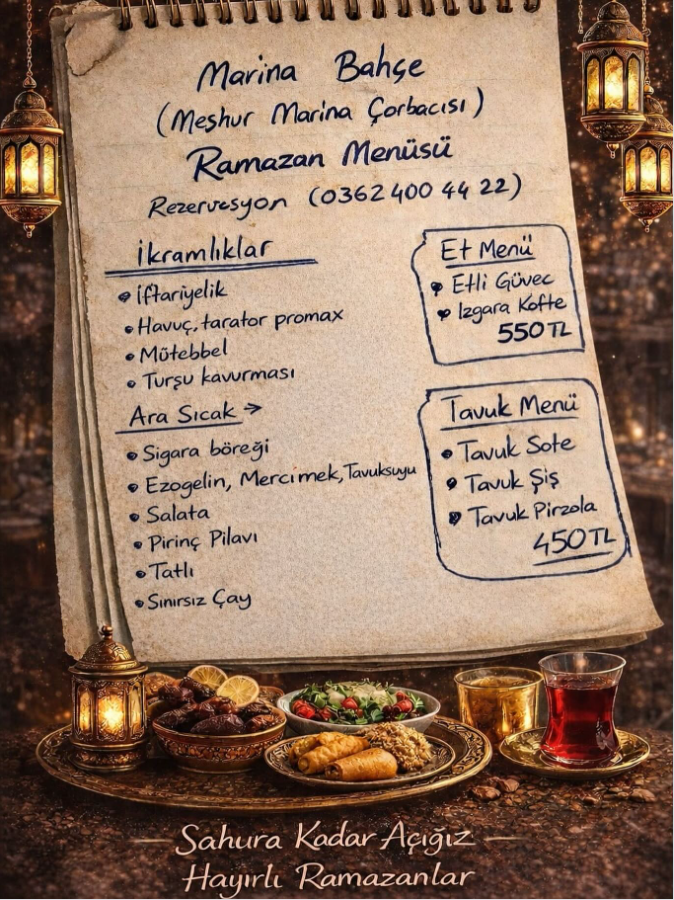 Marina Bahçe
(Meşhur Marina Çorbacısı)
Ramazan Menüsü
Rezervasyon (0362 400 44 22)
İkramlıklar
• İftariyelik
• Havuç, tarator promax
• Mütebbel
• Turşu kavurması
Ara Sıcak →
• Sigara böreği
• Ezogelin, Mercimek, Tavuksuyu
• Salata
• Pirinç Pilavı
• Tatlı
• Sınırsız Çay
Et Menü
• Etli Güvec
• Izgara Kofte
550 TL
Tavuk Menü
• Tavuk Sote
• Tavuk Şiş
• Tavuk Pirzola
450 TL
Sahura Kadar Açığız
Hayırlı Ramazanlar